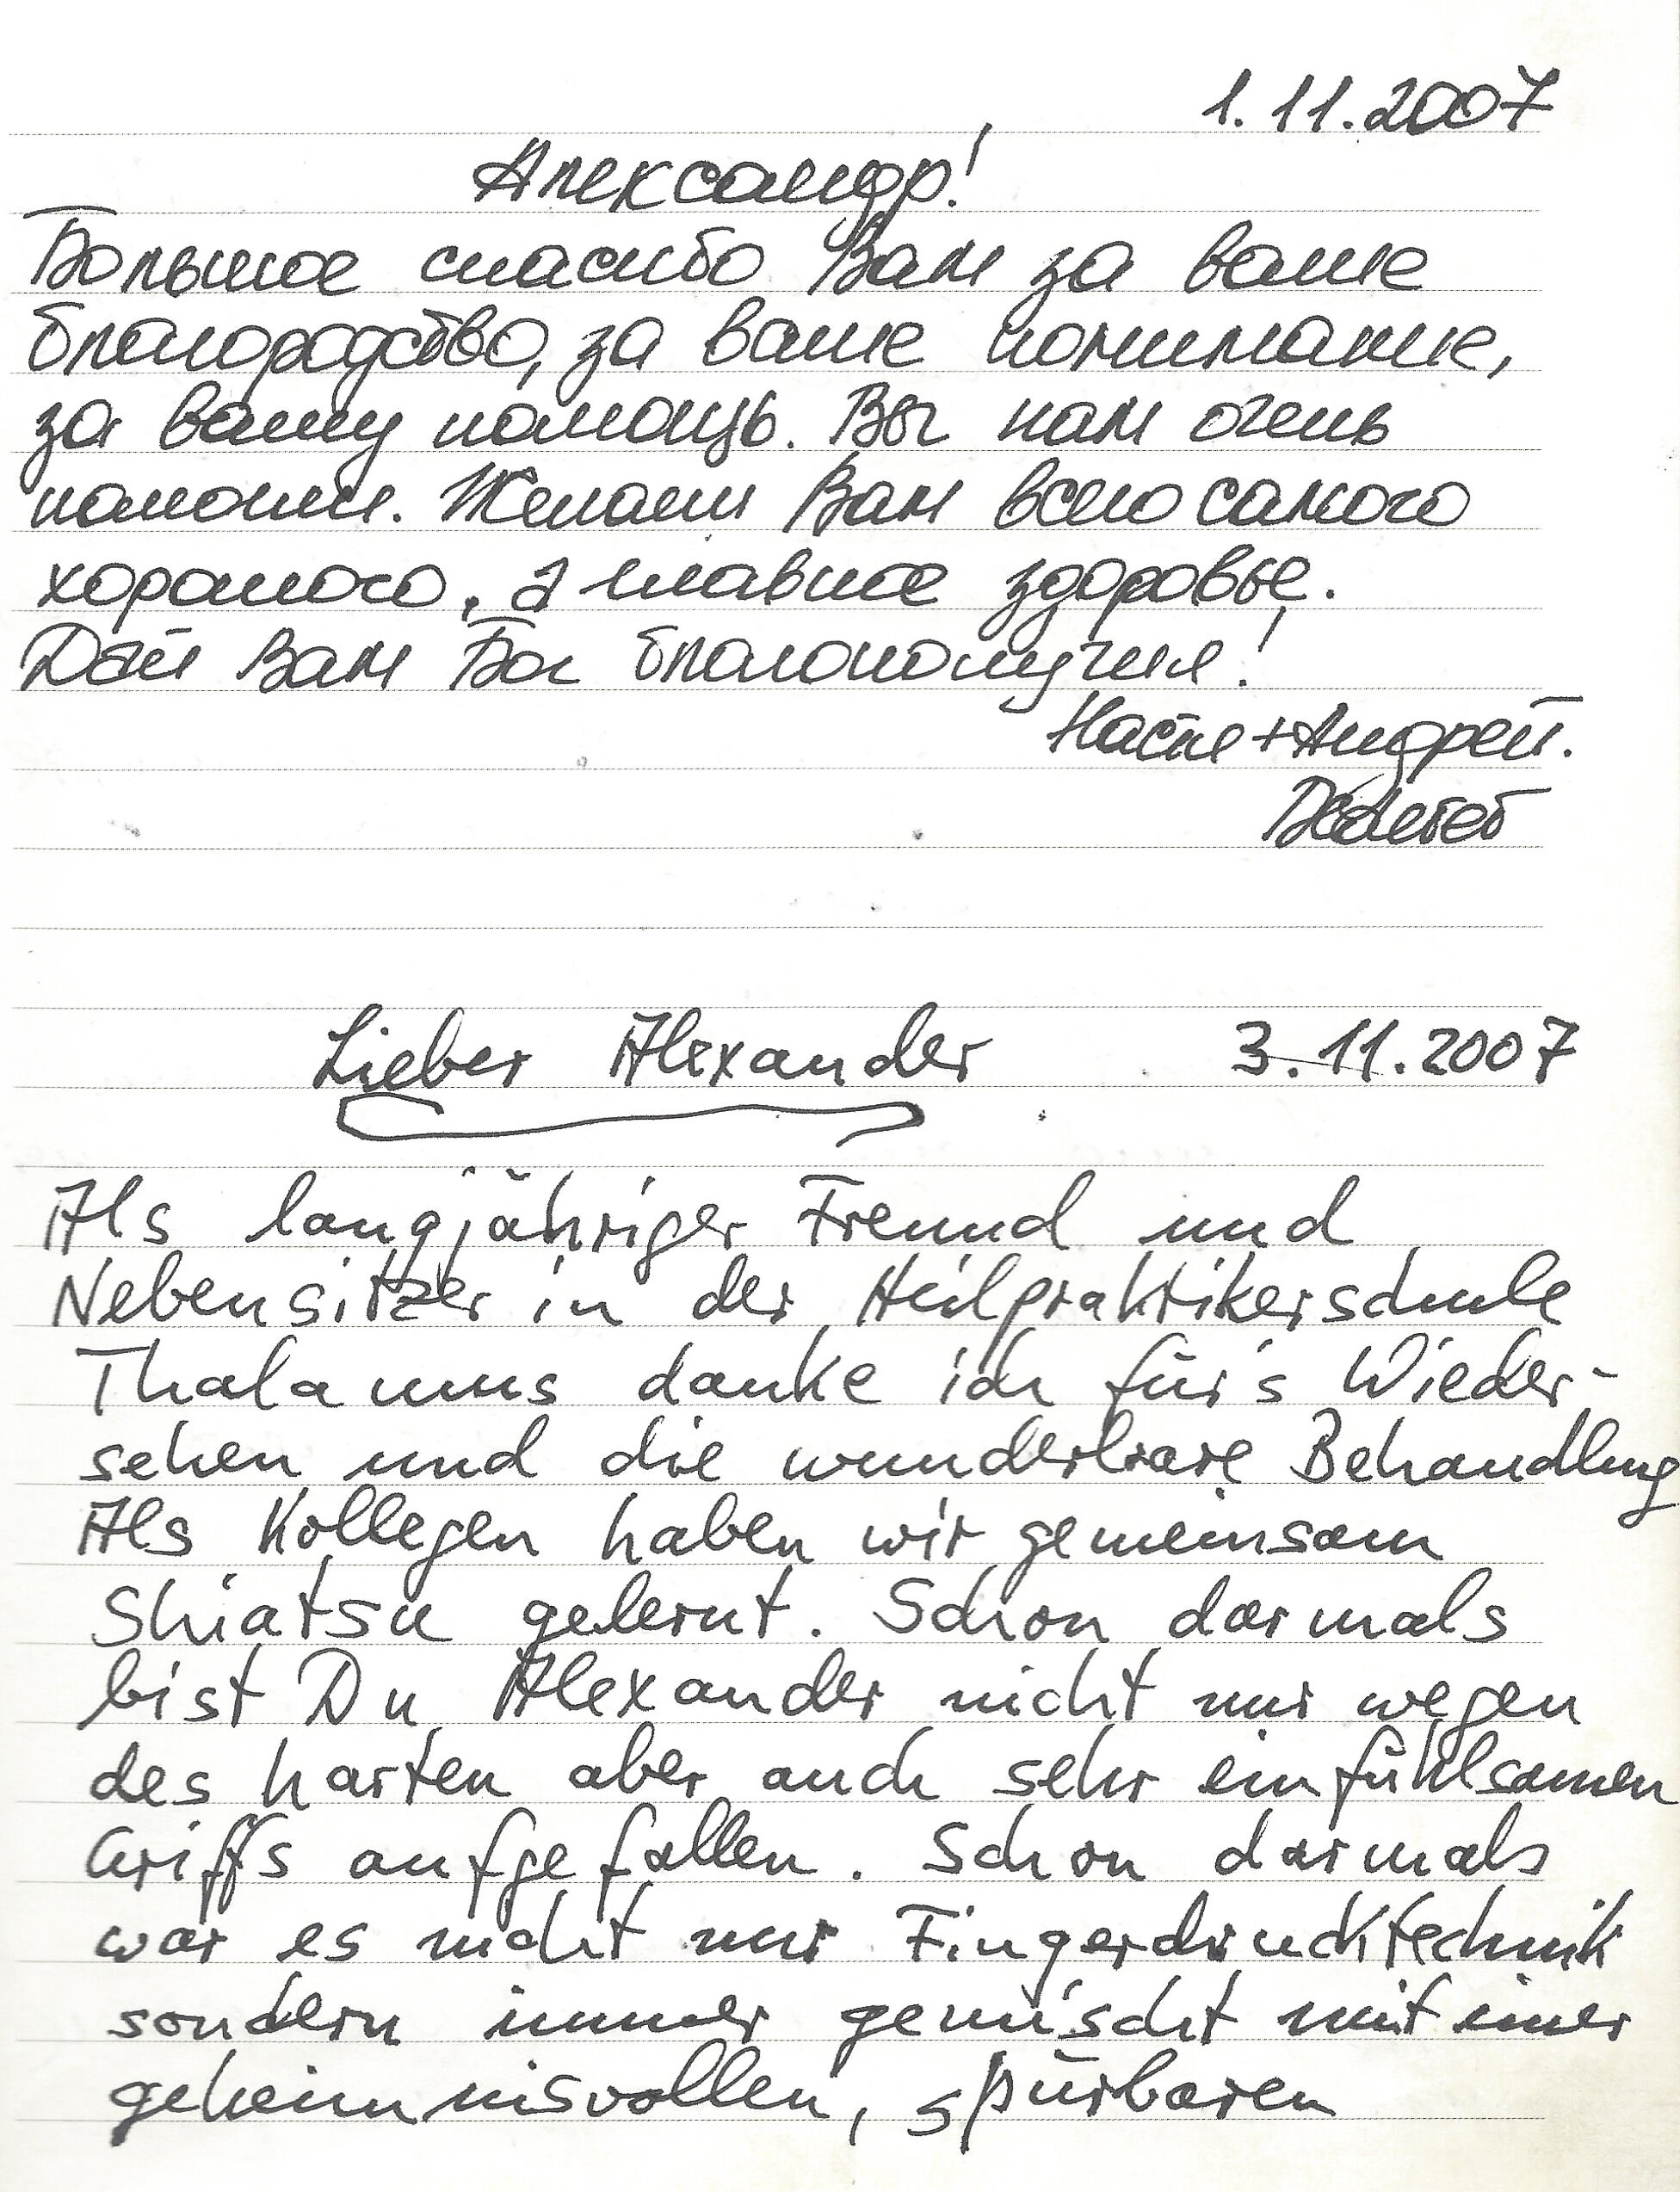 1.11.2007
Александр!
Большое спасибо Вам за ваше
благородство, за ваше понимание,
за вашу помощь. Вы нам очень
помогли. Желаем Вам всего самого
хорошего, а главное здоровье.
Дай Вам Бог благополучия!
Настя + Андрей.
Lieber Alexander 3.11.2007
Als langjähriger Freund und
Nebensitzer in der Heilpraktikerschule
Thalamus danke ich für's Wieder-
sehen und die wunderbare Behandlung
Als Kollegen haben wir gemeinsam
Shiatsu gelernt. Schon darmals
bist Du Alexander nicht nur wegen
des harten aber auch sehr einfühlsamen
Griffs aufgefallen. Schon darmals
war es nicht nur Fingerdrucktechnik
sondern immer gemischt mit einer
geheimnisvollen, spürbaren